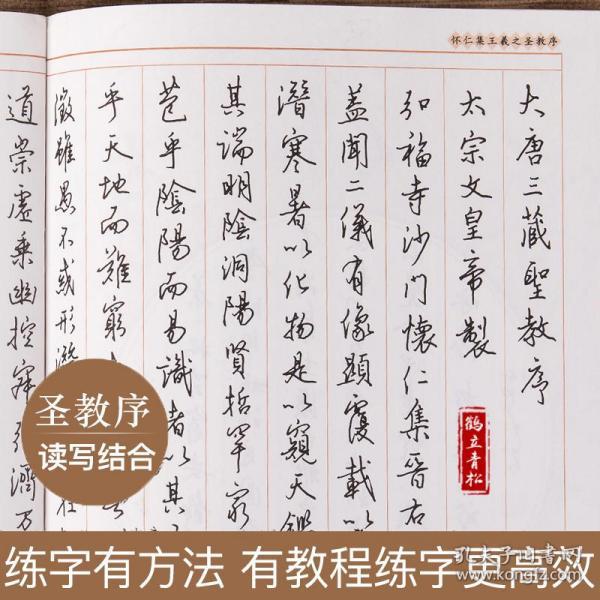 怀仁集王羲之圣教序
大唐三藏聖教序
太宗文皇帝製
弘福寺沙門懷仁集晉右
蓋聞二儀有像顯覆載以
潛寒暑以化物是以窺天鑑
其端明陰洞陽賢哲罕窮
苞乎陰陽而易識者以其
乎天地而難窮
徵雖愚不惑形潛
道崇虛乘幽控寂弘濟万
鹤立青松
圣教序
读写结合
练字有方法 有教程练字更高效
孔夫子旧书网
www.kongfz.com